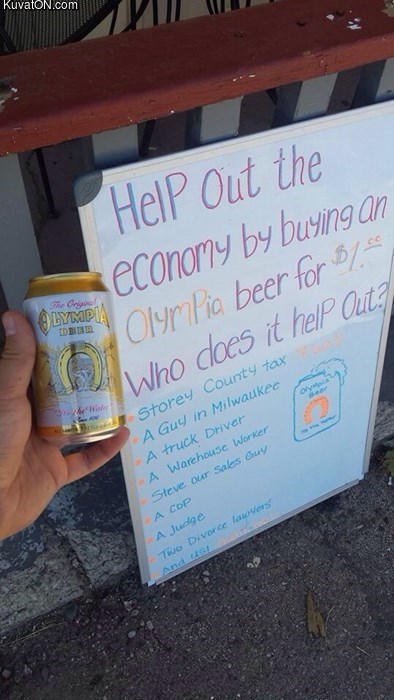 KuvatON.com
HelP Out the
economy by buying an
OlymPia beer for $1.00
Who does it helP Out?
Storey County tax
A Guy in Milwaukee
A truck Driver
A Warehouse Worker
Steve our Sales Guy
A COP
A Judge
Two Divorce lawyers
And us!
Olympia
Beer
The Original
OLYMPIA
BEER
It's the Water